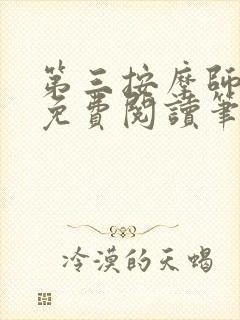 第三按摩師
免費閱讀筆
冷漠的天蝎